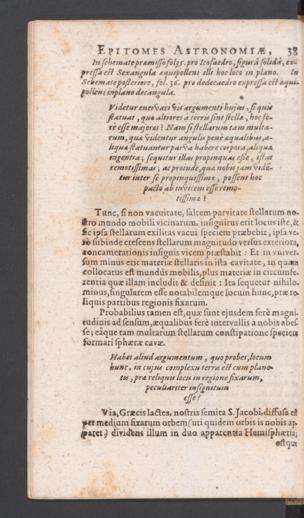 EPITOMES ASTRONOMIÆ, 38
In schemate præmisso fol. 35. pro Icosaedro, figurâ solidâ, ex-
pressa est Sexangula æquipollens illi hoc loco in plano. In
Schemate posteriore, fol. 36. pro dodecaedro expressa est æqui-
pollens in plano decangula.
Videtur enervari vis argumenti hujus, si quis
statuat, quo altiores à terris sint stellæ, hoc fe-
re esse majores? Nam si stellarum tam multa-
rum, quæ videntur angulis penè æqualibus, a-
liqua statuantur parva habere corpora, aliqua
ingentia; sequitur illas propinquas esse, istas
remotissimas; ac proinde, qua nobis jam vide-
tur inter se propinquissima, possent hoc
pacto ab invicem esse remo-
tissima?
Tunc, si non vacuitate, saltem parvitate stellarum no-
stro mundo mobili vicinarum, insignitus erit locus iste, &
sic ipsa stellarum exilitas vacui speciem præbebit, ipsa ve-
rò subinde crescens stellarum magnitudo versus exteriora,
concamerationis insignis vicem præstabit: Et in univer-
sum minus erit materiæ stellaris in ista cavitate, in quam
collocatus est mundus mobilis, plus materiæ in circumfe-
rentia quæ illam includit & definit: Ita sequetur nihilo-
minus, singularem esse notabilemque locum hunc, præ re-
liquis partibus regionis fixarum.
Probabilius tamen est, quæ sunt ejusdem ferè magni-
tudinis ad sensum, æqualibus ferè intervallis à nobis abes-
se; eâque tam multarum stellarum constipatione speciem
formari sphæræ cavæ.
Habes aliud argumentum, quo probes, locum
hunc, in cujus complexu terra est cum plane-
tis, præ reliquis locis in regione fixarum,
peculiariter insignitum
esse?
Via, Græcis lactea, nostris semita S. Jacobi, diffusa est
per medium fixarum orbem (uti quidem orbis is nobis ap-
paret) dividens illum in duo apparentia Hemisphæria;
estque